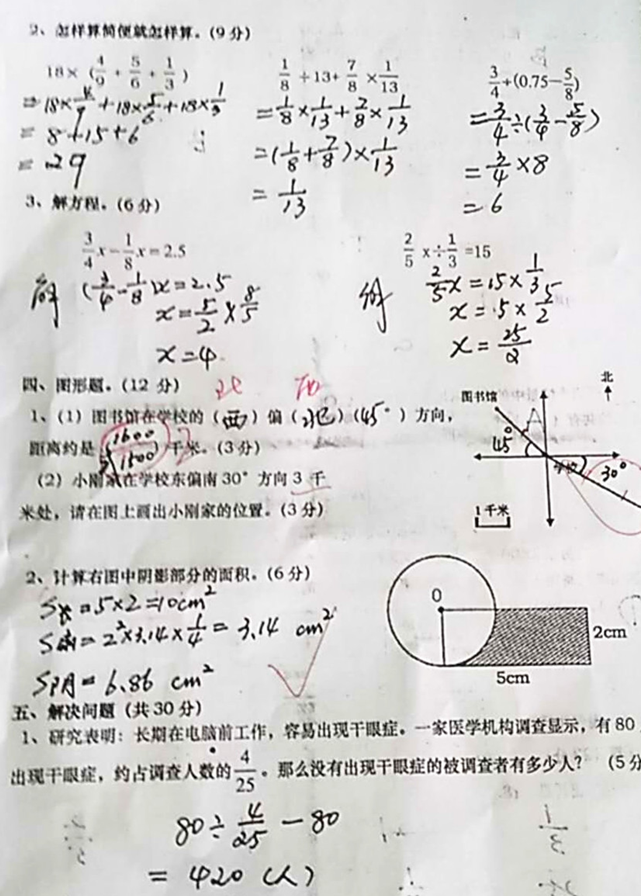 2、怎样算简便就怎样算。(9分)
18× (4/9 + 5/6 + 1/3)
=18×4/9+18×5/6+18×1/3
= 8+15+6
= 29
1/8 ÷13+ 7/8 ×1/13
=1/8×1/13+7/8×1/13
=(1/8+7/8)×1/13
= 1/13
3/4÷(0.75-5/8)
=3/4÷(3/4-5/8)
=3/4×8
=6
3、解方程。(6分)
3/4x-1/8x=2.5
解 (3/4-1/8)x=2.5
x=5/2×8/5
x=4
2/5 x÷1/3 =15
解 2/5x=15×1/3
x=5×5/2
x=25/2
四、图形题。(12 分)
北 西
1、(1)图书馆在学校的(西)偏(北)(45°)方向,
距离约是 1500 千米。(3分)
(2)小刚家在学校东偏南30°方向3 千
米处,请在图上画出小刚家的位置。(3分)
北
图书馆
45°
学校
30°
1千米
2、计算右图中阴影部分的面积。(6分)
=5×2=10cm²
=2²×3.14×1/4=3.14 cm²
S阴=6.86 cm²
O
2cm
5cm
五、解决问题(共30分)
1、研究表明:长期在电脑前工作,容易出现干眼症。一家医学机构调查显示,有80
出现干眼症,约占调查人数的4/25。那么没有出现干眼症的被调查者有多少人? (5分
80÷4/25-80
=420(人)